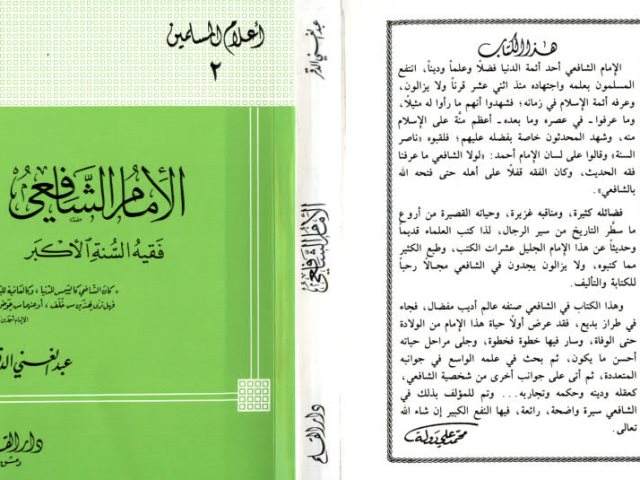 أعلام المسلمين
٢
الإمام الشافعي
فقيه السنة الأكبر
الإمام أحمد بن
عبد الغني الدقر
دار القلم
عبد الغني الدقر
الإمام الشافعي
دار القلم
هذا الكتاب
الإمام الشافعي أحد أئمة الدنيا فضلاً وعلماً وديناً، انتفع
المسلمون بعلمه واجتهاده منذ اثني عشر قرناً ولا يزالون،
وعرفه أئمة الإسلام في زمانه؛ فشهدوا أنهم ما رأوا له مثيلاً،
وما عرفوا ـ في عصره وما بعده ـ أعظم منّة على الإسلام
منه، وشهد المحدثون خاصة بفضله عليهم؛ فلقبوه «ناصر
السنة» وقالوا على لسان الإمام أحمد: «لولا الشافعي ما عرفنا
فقه الحديث، وكان الفقه قفلاً على أهله حتى فتحه الله
بالشافعي».
فضائله كثيرة، ومناقبه غزيرة، وحياته القصيرة من أروع
ما سطّر التاريخ من سير الرجال، لذا كتب العلماء قديماً
وحديثاً عن هذا الإمام الجليل عشرات الكتب، وطبع الكثير
مما كتبوه، ولا يزالون يجدون في الشافعي مجالاً رحباً
للكتابة والتأليف.
وهذا الكتاب في الشافعي صنفه عالم أديب مفضال، فجاء
في طراز بديع، فقد عرض أولاً حياة هذا الإمام من الولادة
حتى الوفاة، وسار فيها خطوة فخطوة، وجلى مراحل حياته
أحسن ما يكون، ثم بحث في علمه الواسع في جوانبه
المتعددة، ثم أتى على جوانب أخرى من شخصية الشافعي،
كعقله ودينه وحكمه وتجاربه... وتم للمؤلف بذلك في
الشافعي سيرة واضحة، رائعة، فيها النفع الكبير إن شاء الله
تعالى.
محمد علي دولة